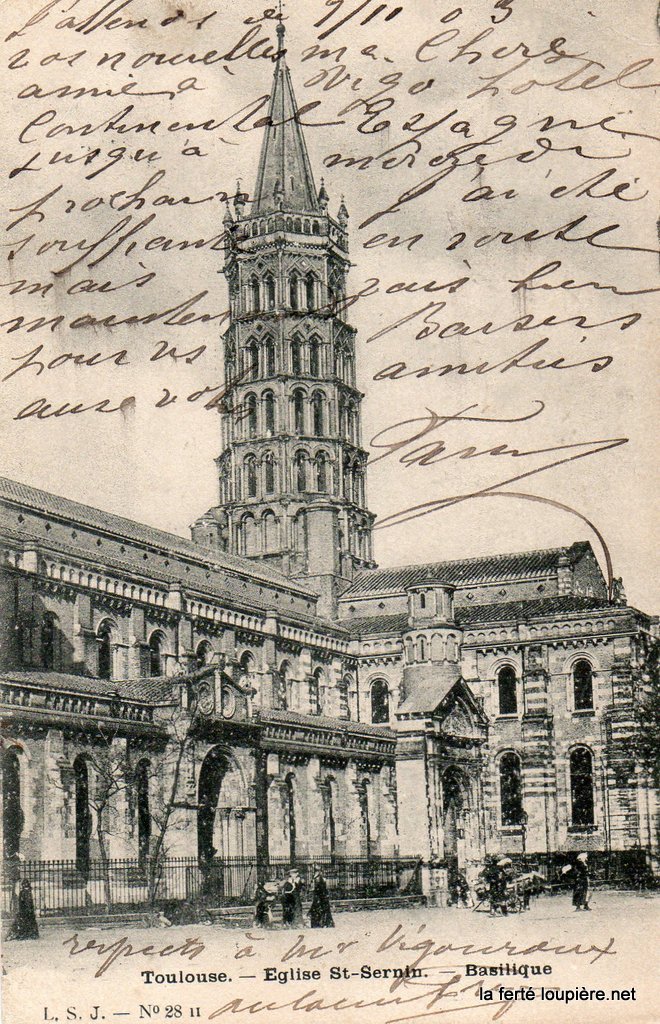 J'attends de 9/11 03
vos nouvelles ma Chère
amie à Vigo hotel
Continental Espagne
jusqu'à mercredi
prochain J'ai été
souffrante en route
mais suis bien
maintent Baisers
pour vs amitiés
aure
respects à mr Vigouroux
Toulouse. — Eglise St-Sernin. — Basilique
la ferté loupière.net
L. S. J. — No 28 II